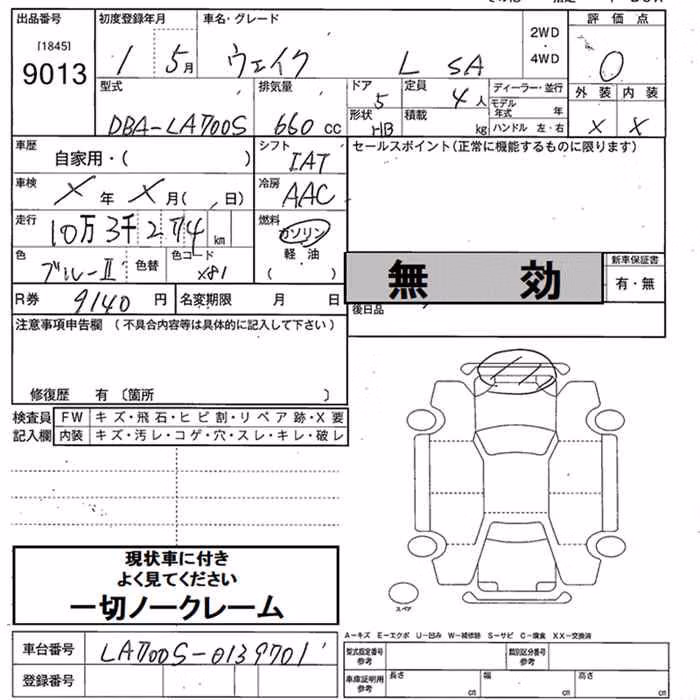 出品番号 初度登録年月 車名・グレード 2WD・4WD 評価点
[1845]
9013 1 5月 ウェイク L SA 0
外装 内装
X X
型式 排気量 ドア 定員 ディーラー・並行
DBA-LA700S 660cc 5 4人 モデル年式 年
形状 積載 ハンドル 左・右
HB kg
車歴 シフト セールスポイント(正常に機能するものに限ります)
自家用・( ) IAT
車検 冷房
X年 X月( 日) AAC
走行 燃料
10万3千2 4km ガソリン
軽油
( )
色 色替 色コード
ブルーII X81
無効 新車保証書
有・無
R券 9140円 名変期限 月 日 後日品
注意事項申告欄 (不具合内容等は具体的に記入して下さい)
修復歴 有 〔箇所 〕
検査員 FW キズ・飛石・ヒビ割・リペア跡・X要
記入欄 内装 キズ・汚レ・コゲ・穴・スレ・キレ・破レ
現状車に付き
よく見てください
一切ノークレーム
スペア
A-キズ E-エクボ U-凹み W-補修跡 S-サビ C-腐食 XX-交換済
車台番号 LA700S-0139701
登録番号
型式指定番号 参考 類別区分番号 参考
車庫証明用 参考 長さ cm 幅 cm 高さ cm